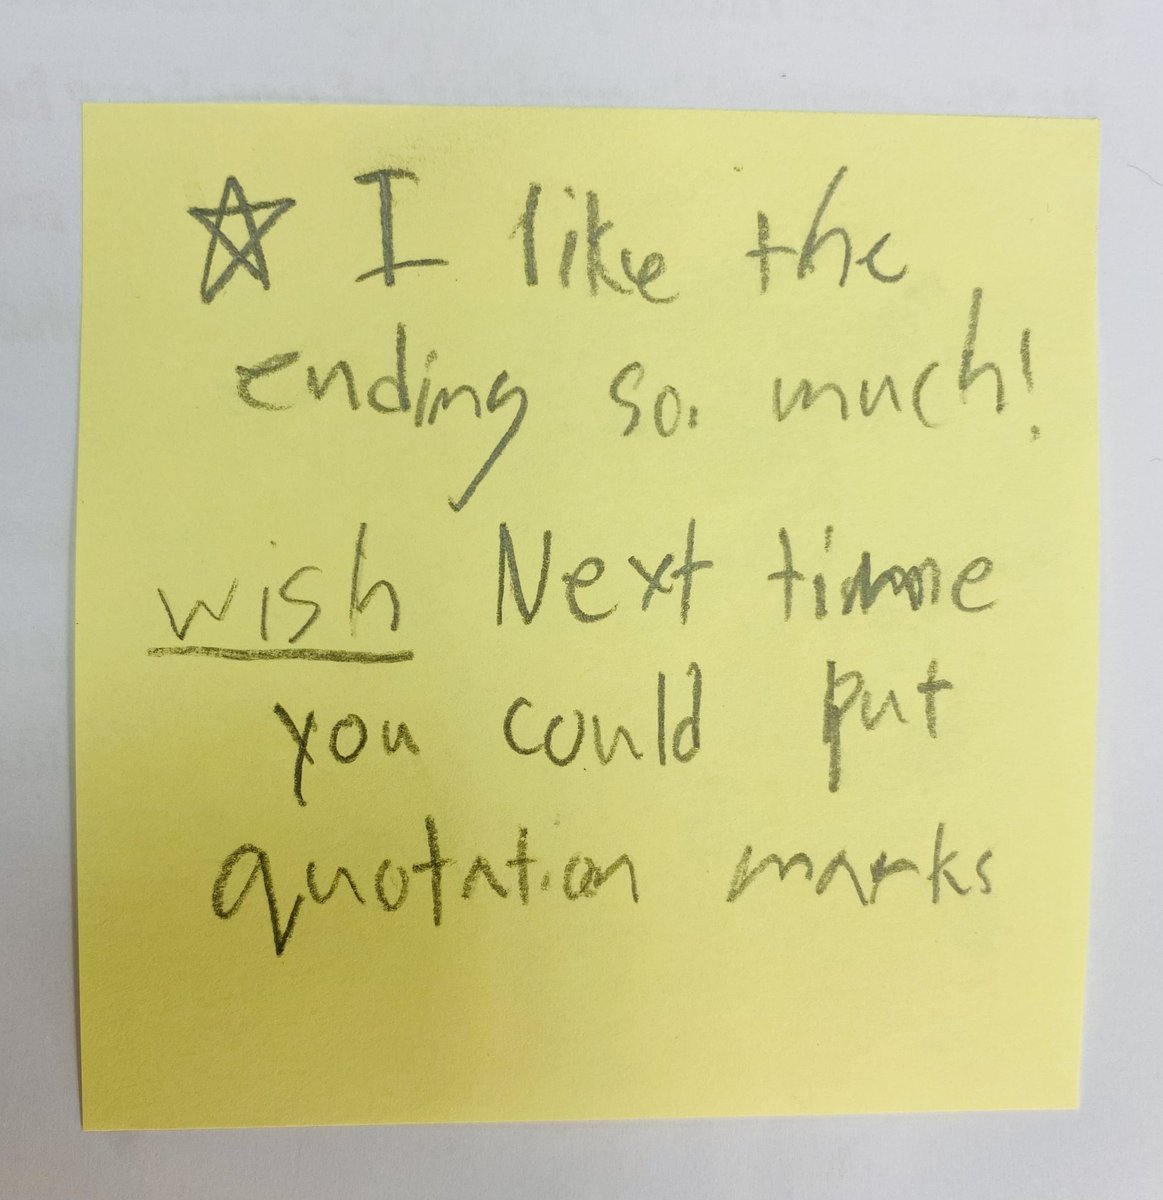 ☆ I like the
ending so. much!
wish Next time
you could put
quotation marks